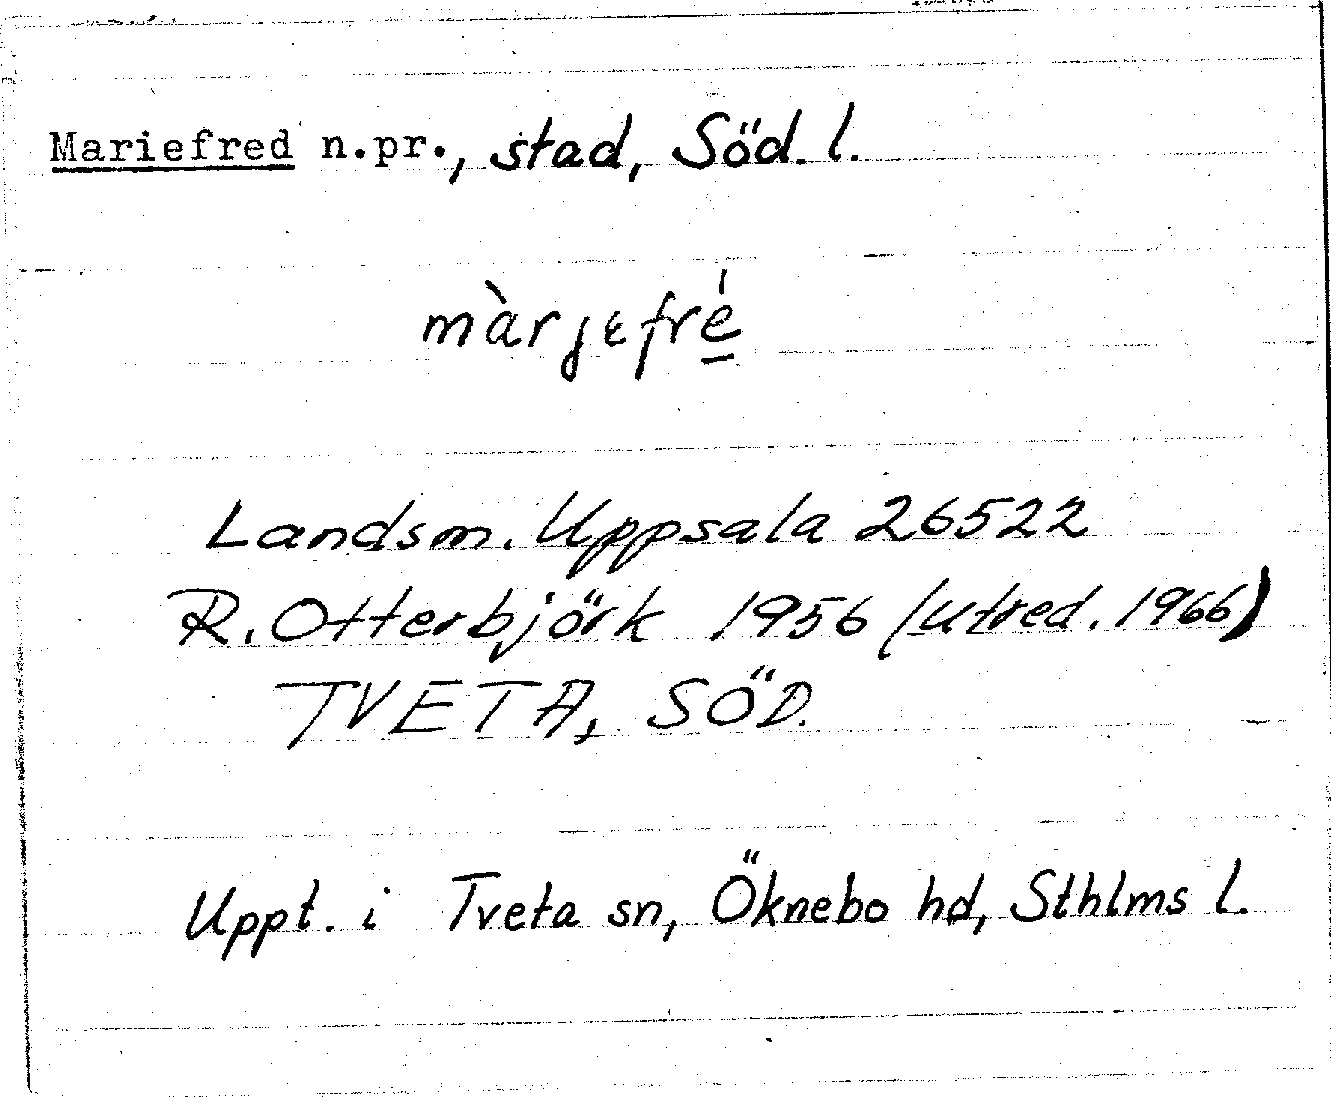 Mariefred n.pr., stad, Söd. l.
màrjɛfré̱
Landsm. Uppsala 26522
R. Otterbjörk 1956 (utred. 1966)
TVETA, SÖD.
Uppt. i Tveta sn, Öknebo hd, Sthlms l.